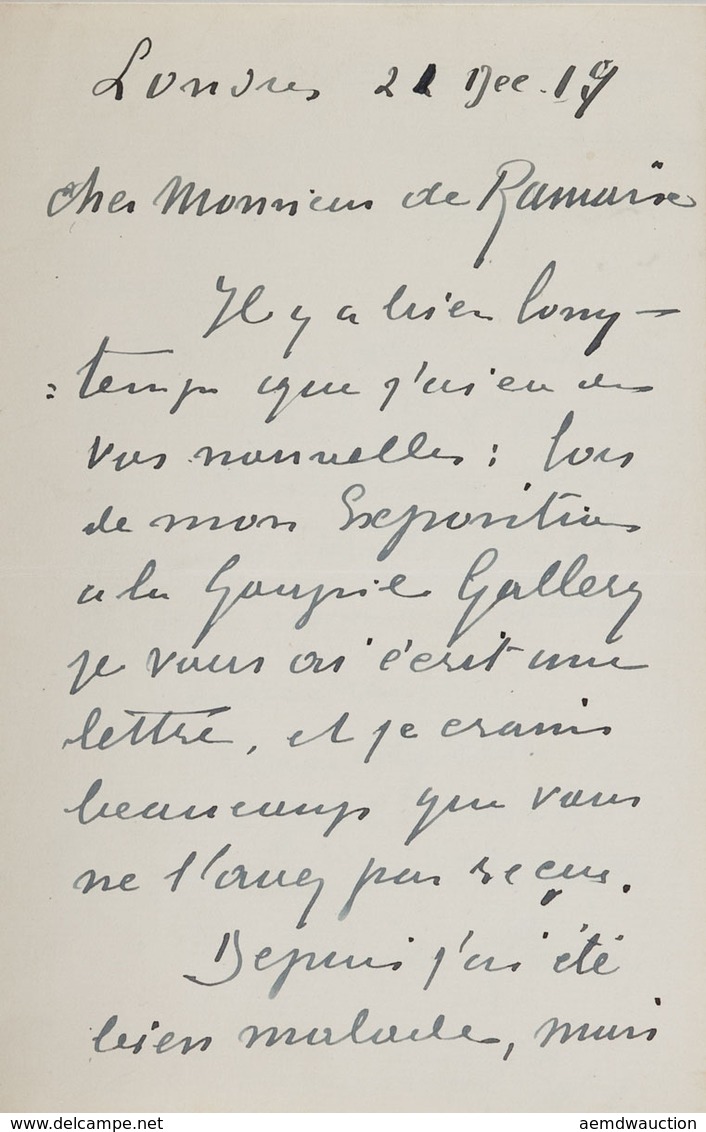 Londres 21 Dec. 19
Cher Monsieur de Ramaix
Il y a bien long-
=temps que j'ai eu des
vos nouvelles : lors
de mon Exposition
a la Goupil Gallery
je vous ai écrit une
lettre, et je crains
beaucoup que vous
ne l'avez pas reçue.
Depuis j'ai été
bien malade, mais
www.delcampe.net
aemdwauction